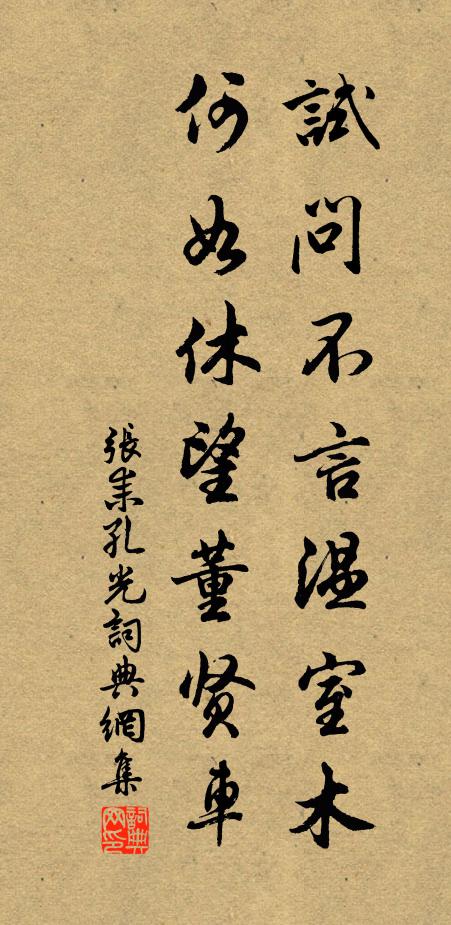 試問不言温室木
何如休望董贤車
張耒孔光詞典網集
詞典网印